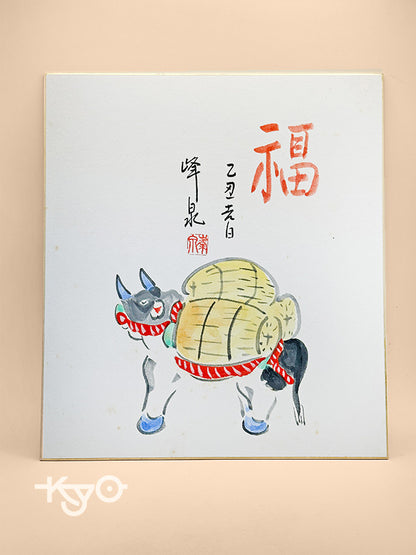 福
乙丑元旦
峰泉
Kyo